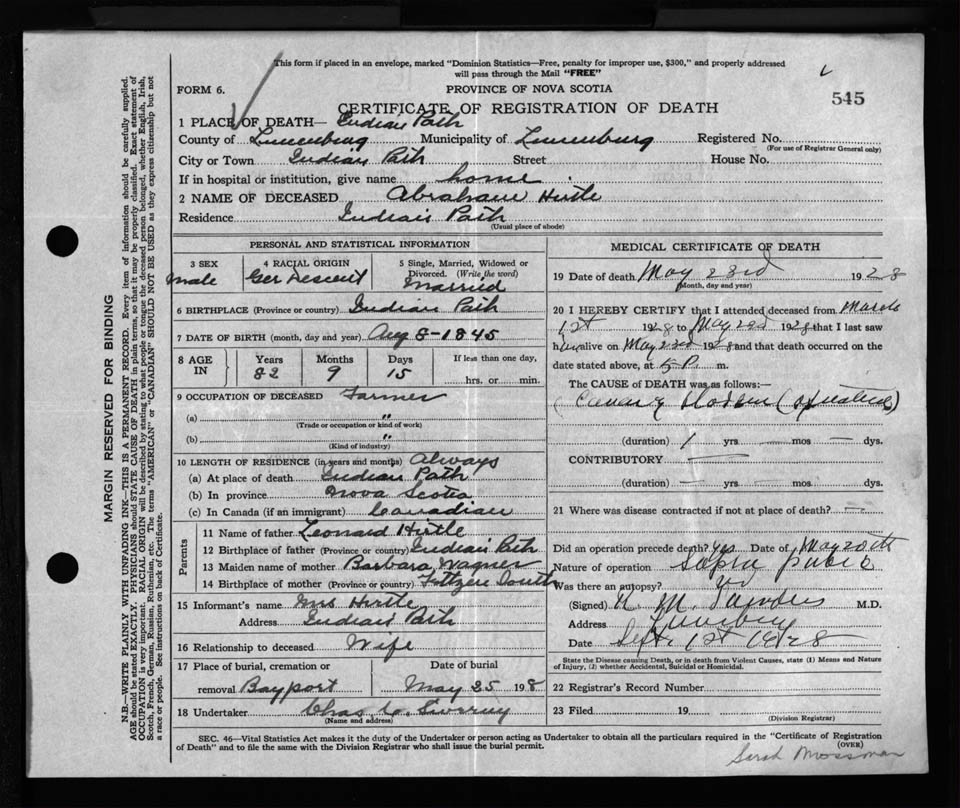 This form if placed in an envelope, marked "Dominion Statistics—Free, penalty for improper use, $300," and properly addressed
will pass through the Mail "FREE"
FORM 6.
PROVINCE OF NOVA SCOTIA
545
CERTIFICATE OF REGISTRATION OF DEATH
1 PLACE OF DEATH— Indian Path
County of Lunenburg Municipality of Lunenburg Registered No.
(For use of Registrar General only)
City or Town Indian Path Street House No.
If in hospital or institution, give name home
2 NAME OF DECEASED Abraham Hirtle
Residence Indian Path
(Usual place of abode)
PERSONAL AND STATISTICAL INFORMATION
3 SEX
Male
4 RACIAL ORIGIN
Ger Descent
5 Single, Married, Widowed or
Divorced. (Write the word)
Married
6 BIRTHPLACE (Province or country) Indian Path
7 DATE OF BIRTH (month, day and year) Aug 8-1845
8 AGE IN
Years Months Days If less than one day,
82 9 15 hrs. or min.
9 OCCUPATION OF DECEASED Farmer
(a) "
(Trade or occupation or kind of work)
(b) "
(Kind of industry)
10 LENGTH OF RESIDENCE (in years and months) Always
(a) At place of death Indian Path
(b) In province Nova Scotia
(c) In Canada (if an immigrant) Canadian
Parents
11 Name of father Leonard Hirtle
12 Birthplace of father (Province or country) Indian Path
13 Maiden name of mother Barbara Wagner
14 Birthplace of mother (Province or country) South
15 Informant's name Mrs Hirtle
Address Indian Path
16 Relationship to deceased Wife
17 Place of burial, cremation or
removal Bayport
Date of burial
May 25 198
18 Undertaker Chas
(Name and address)
MEDICAL CERTIFICATE OF DEATH
19 Date of death May 23rd 1928
(Month, day and year)
20 I HEREBY CERTIFY that I attended deceased from March
1st 1928 to May 23rd 1928 that I last saw
h alive on May 23rd 1928 and that death occurred on
the date stated above, at 5 P. m.
The CAUSE of DEATH was as follows:—
(duration) 1 yrs. — mos — dys.
CONTRIBUTORY —
(duration) — yrs. — mos — dys.
21 Where was disease contracted if not at place of death? —
Did an operation precede death? yes Date of May 20th
Nature of operation Supra pubic
Was there an autopsy?
(Signed) M.D.
Address Lunenburg
Date Sept 1st 1928
State the Disease causing Death, or in death from Violent Causes, state (1) Means and Nature
of Injury, (2) whether Accidental, Suicidal or Homicidal.
22 Registrar's Record Number
23 Filed 19
(Division Registrar)
SEC. 46—Vital Statistics Act makes it the duty of the Undertaker or person acting as Undertaker to obtain all the particulars required in the "Certificate of Registration
of Death" and to file the same with the Division Registrar who shall issue the burial permit.
(OVER)
Sarah Mossman
MARGIN RESERVED FOR BINDING
N.B—WRITE PLAINLY WITH UNFADING INK—THIS IS A PERMANENT RECORD. Every item of information should be carefully supplied.
AGE should be stated EXACTLY. PHYSICIANS should STATE CAUSE OF DEATH in plain terms, so that it may be properly classified. Exact statement of
OCCUPATION is very important. RACIAL ORIGIN will be described by stating to what people or tongue the deceased person belonged, whether English, Irish,
Scotch, French, German, Russian, Ruthenian, etc. The terms "AMERICAN" or "CANADIAN" SHOULD NOT BE USED as they express citizenship but not
a race or people. See instructions on back of Certificate.